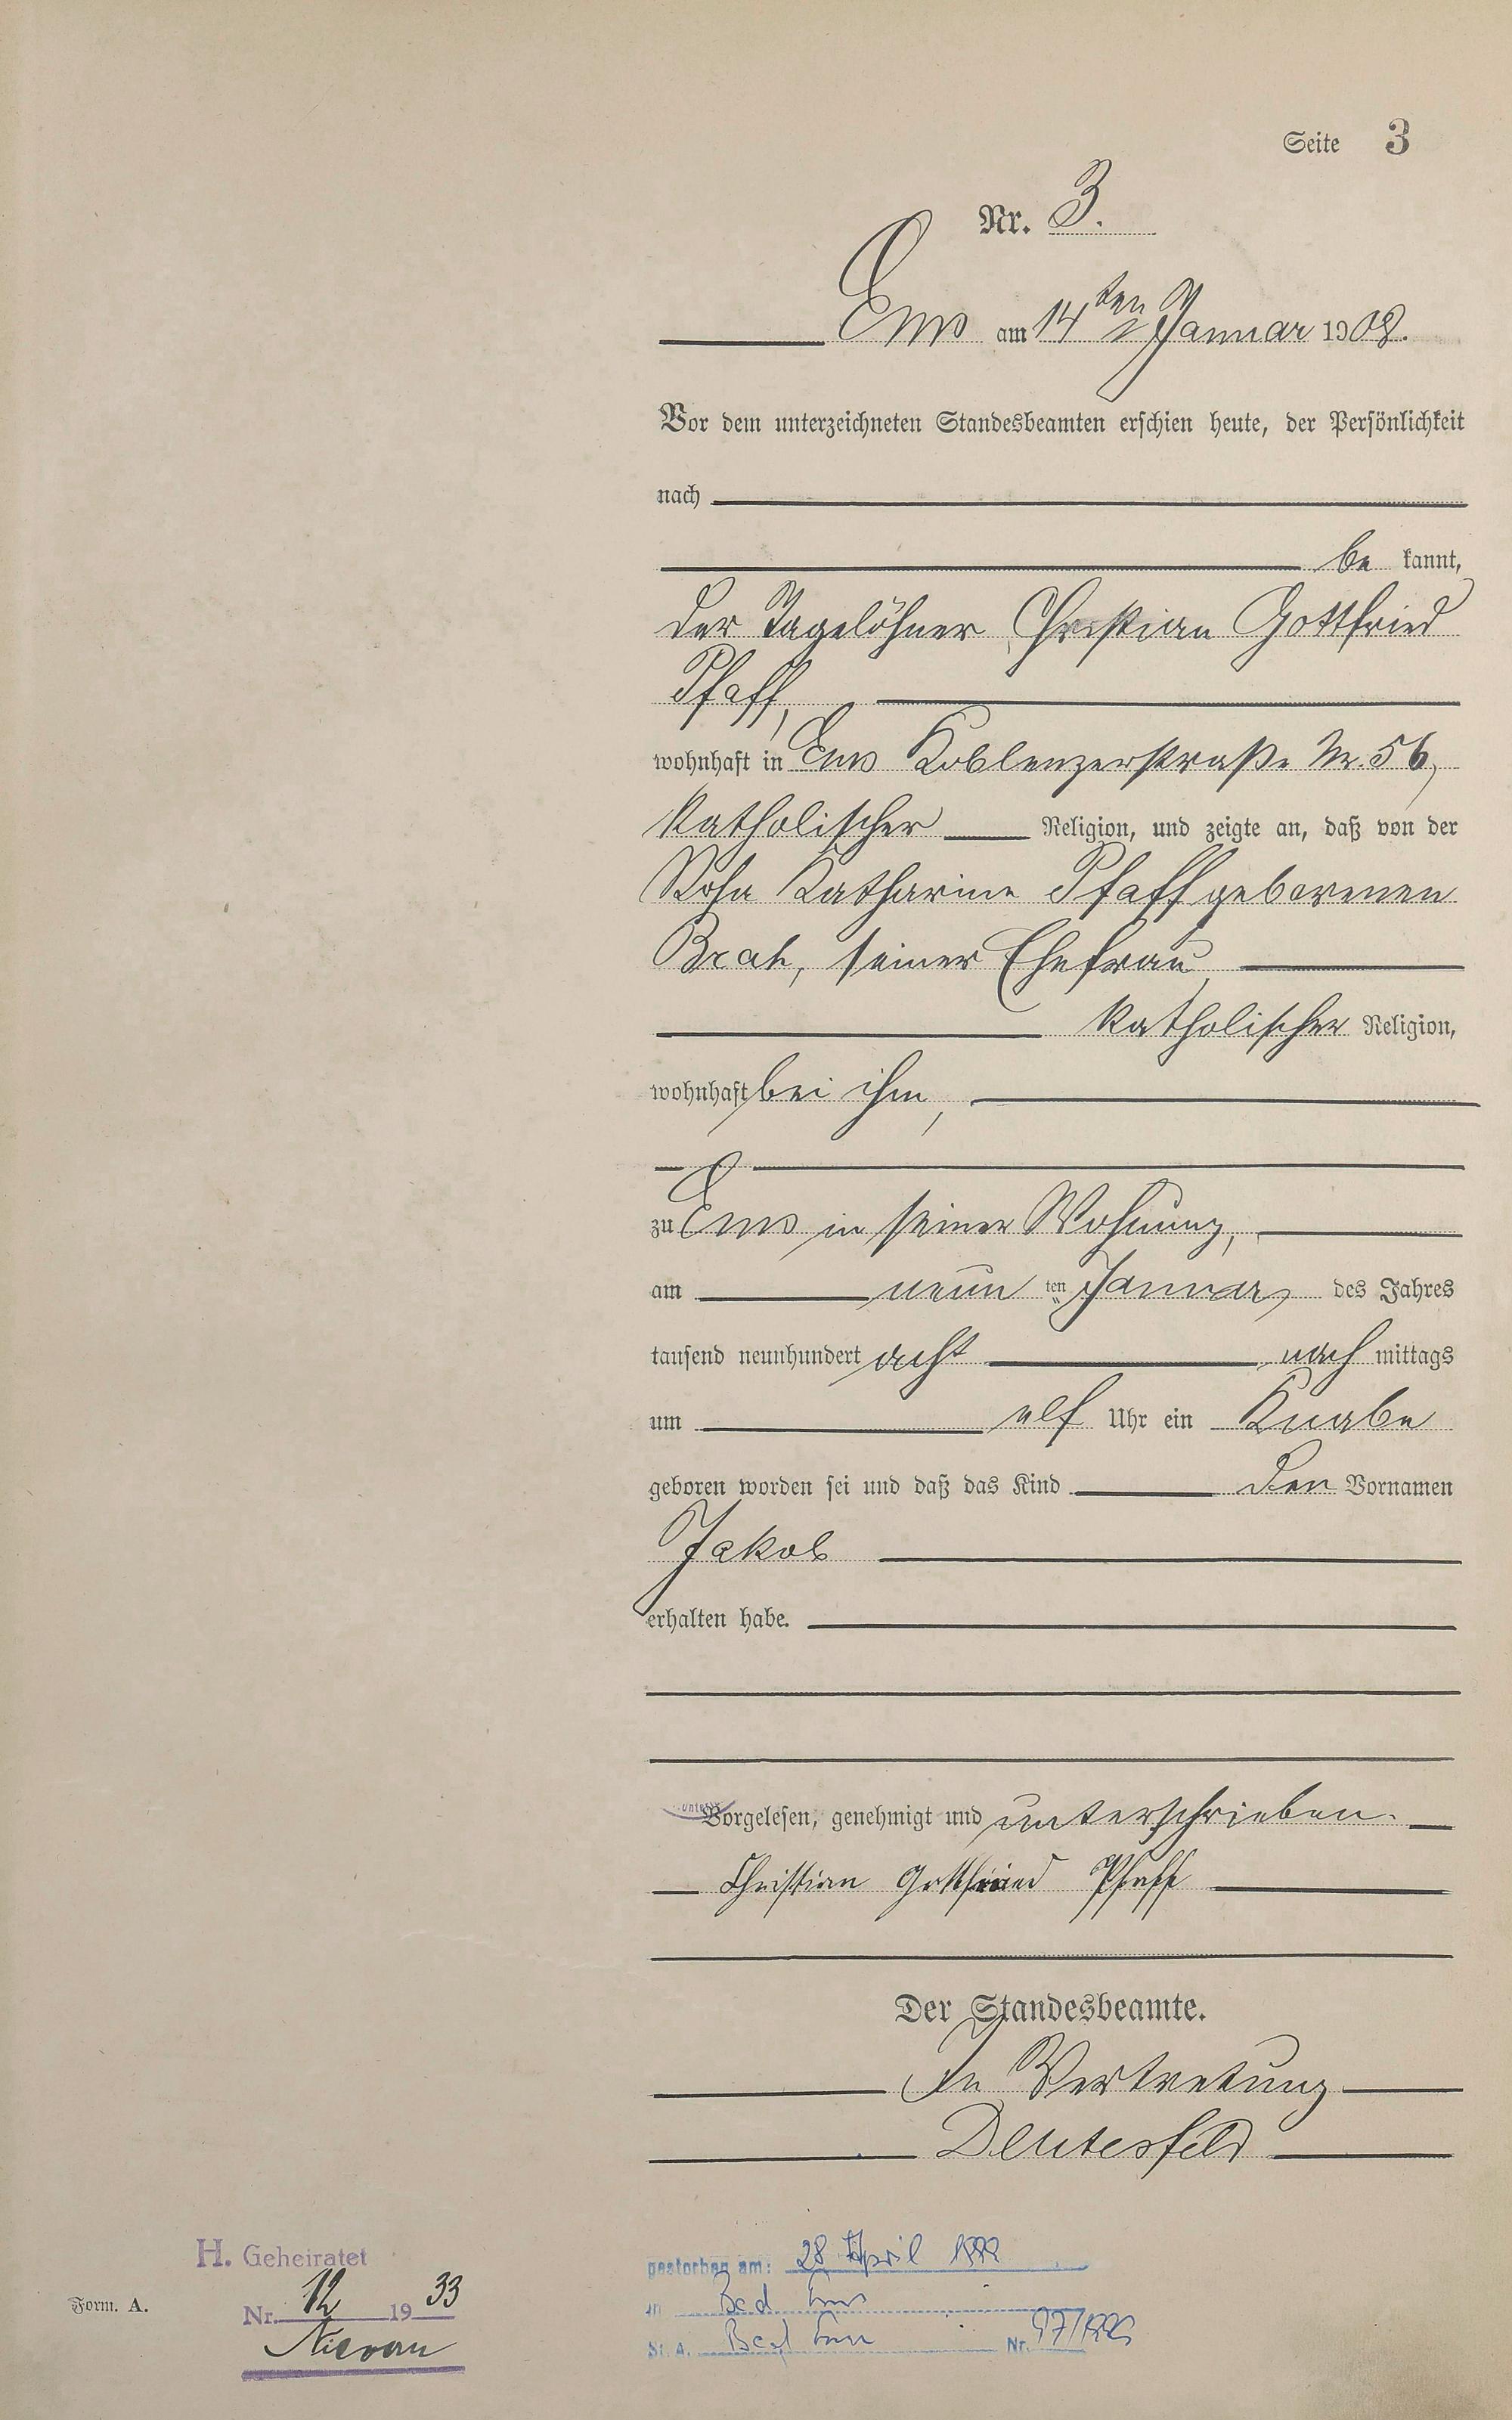 Seite 3
Nr. 3.
Ems am 14ten Januar 1908.
Vor dem unterzeichneten Standesbeamten erschien heute, der Persönlichkeit
nach
be kannt,
der Tagelöhner Christian Gottfried
Pfaff,
wohnhaft in Ems Koblenzerstraße Nr. 56,
katholischer Religion, und zeigte an, daß von der
Rosa Katharine Pfaff geborenen
seiner Ehefrau,
katholischer Religion,
wohnhaft bei ihm,
zu Ems in seiner Wohnung,
am neun ten Januar des Jahres
tausend neunhundert acht nach mittags
um elf Uhr ein Knabe
geboren worden sei und daß das Kind den Vornamen
Jakob
erhalten habe.
Vorgelesen, genehmigt und unterschrieben.
Christian Gottfried Pfaff
Der Standesbeamte.
In Vertretung
H. Geheiratet
Nr. 12 1933
Nievern
Form. A.
gestorben am: 28. April
in Bad Ems
St. A. Bad Ems Nr.